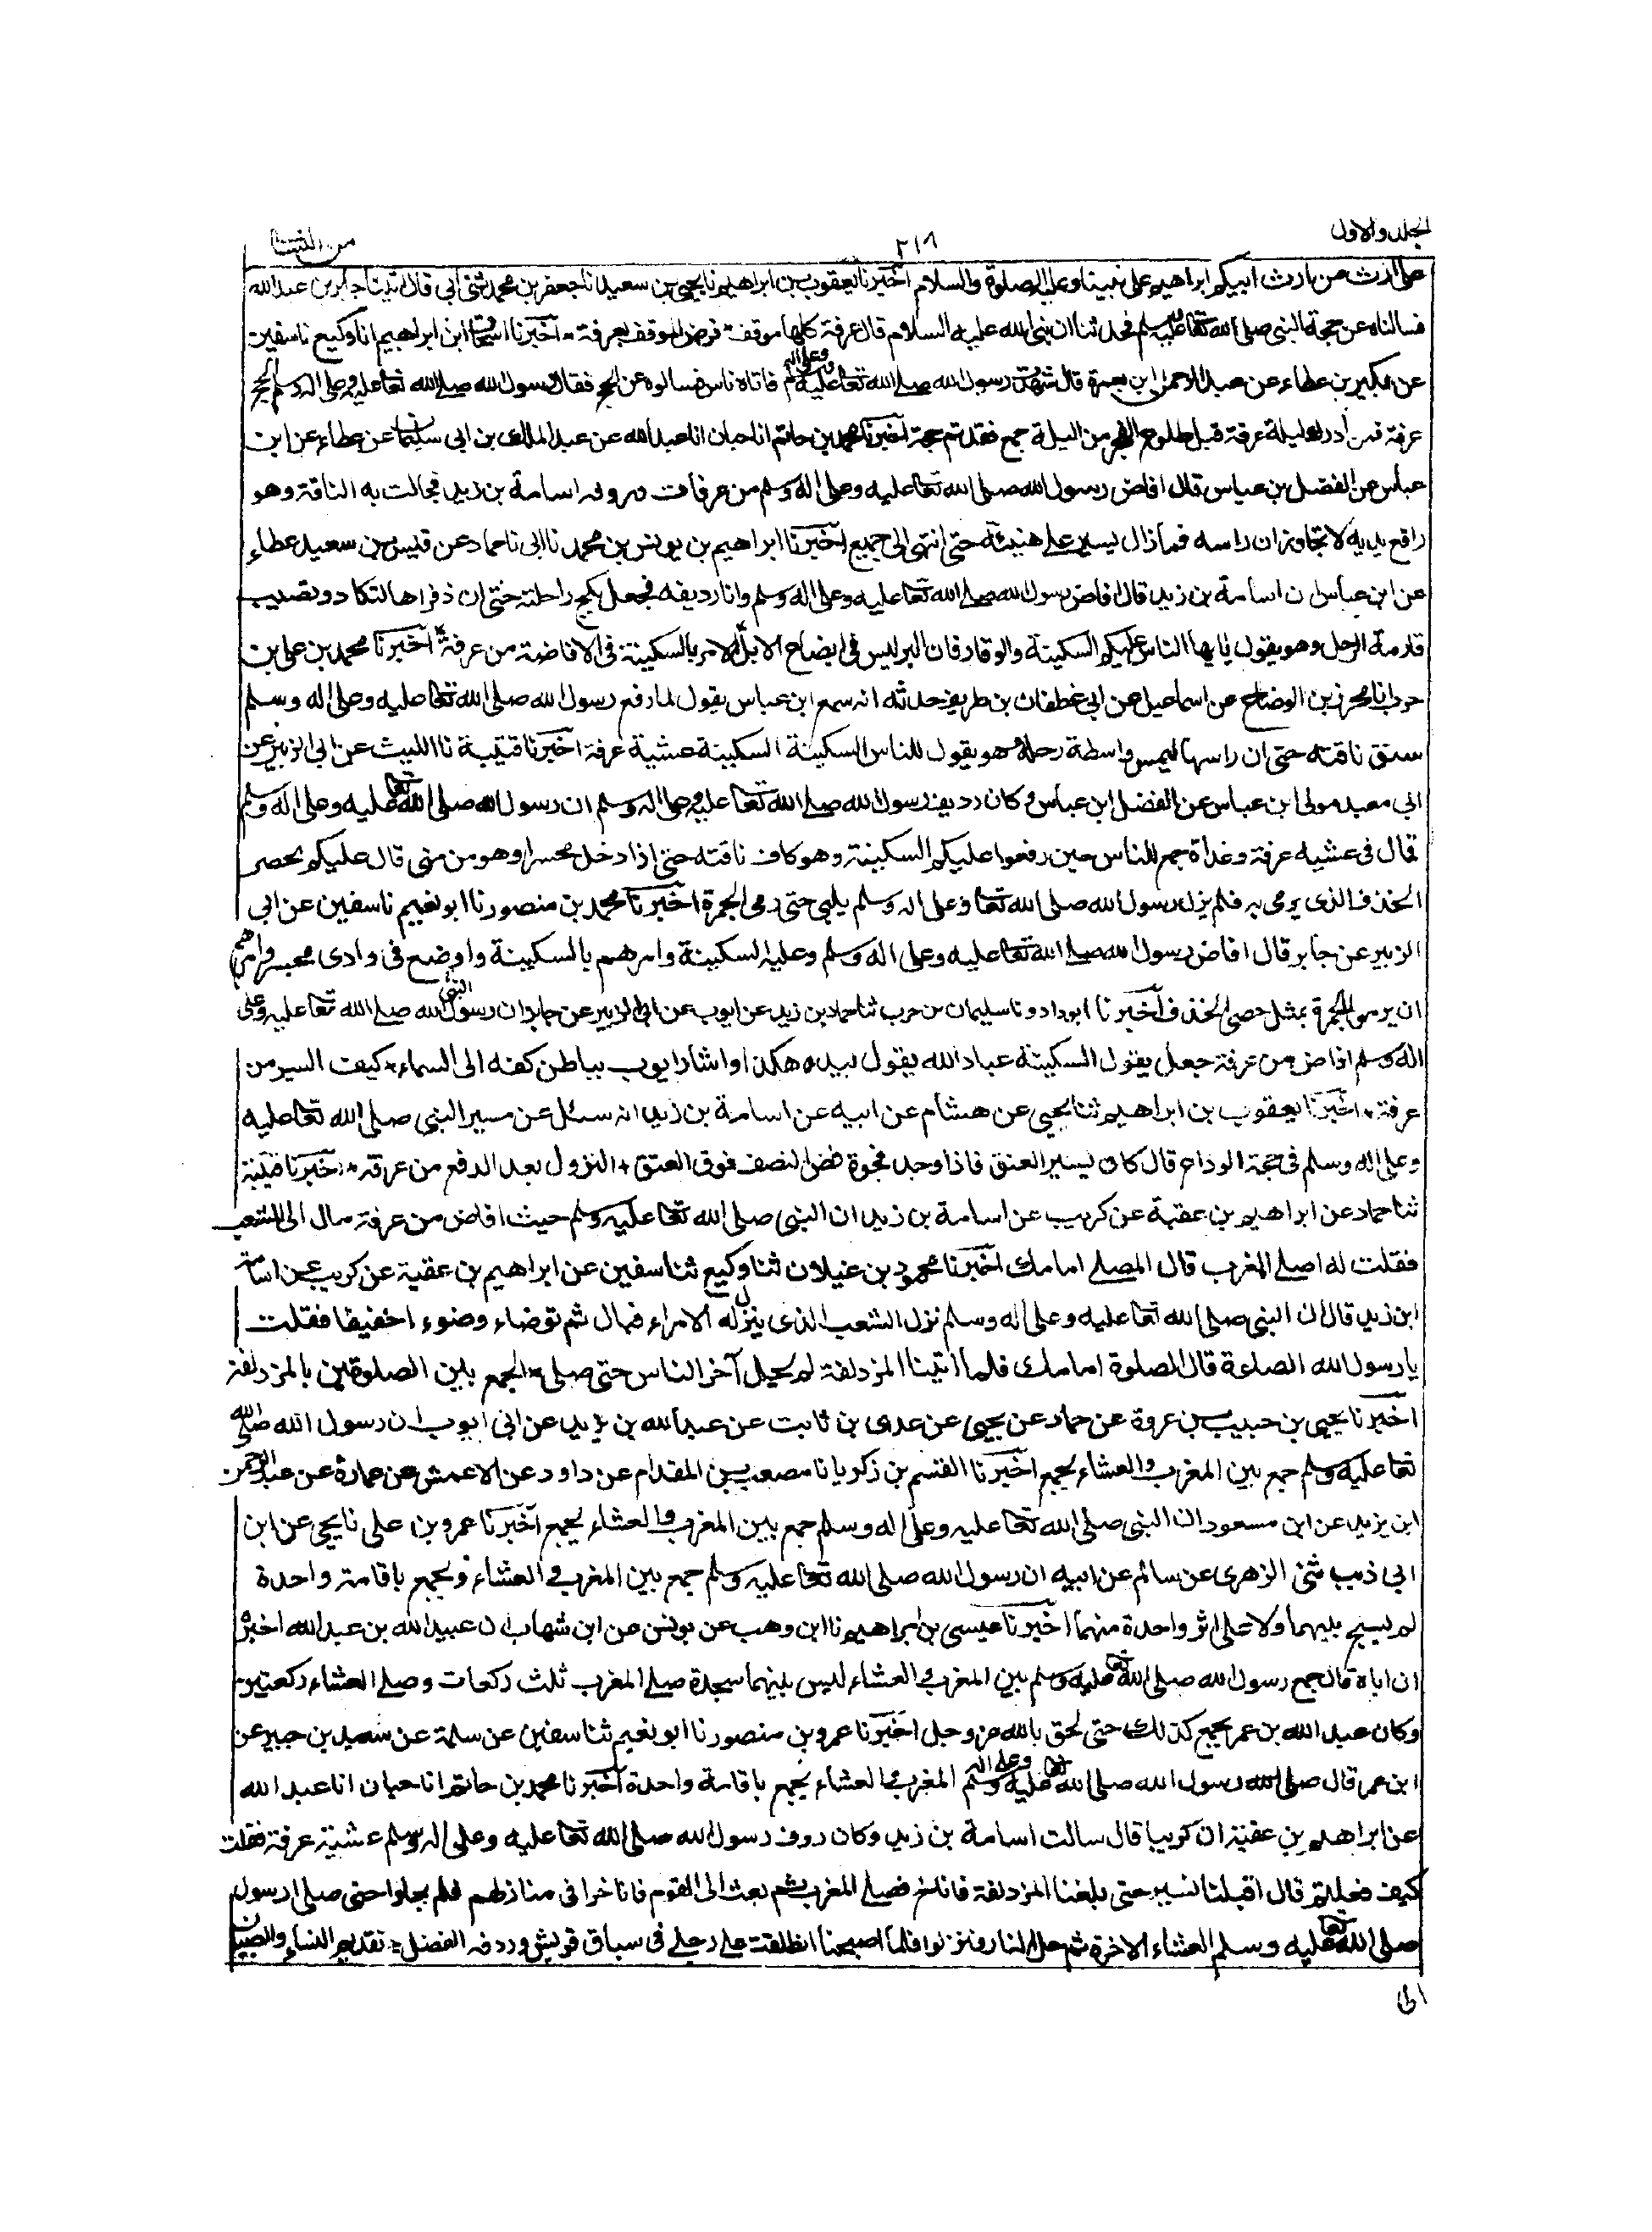 الجلد والاول
٢١٨
من النسا
على ارث من ارث ابيكم ابراهيم على نبينا وعليه الصلوة والسلام اخبرنا يعقوب بن ابراهيم نا يحيى بن سعيد نا جعفر بن محمد ثنى ابى قال اتينا جابر بن عبد الله
فسالناه عن حجة النبى صلى الله تعا عليه وسلم فحدثنا ان نبى الله عليه السلام قال عرفة كلها موقف فرض الموقف بعرفة اخبرنا اسحاق ابن ابراهيم انا وكيع نا سفين
عن بكير بن عطاء عن عبد الرحمن ابن يعمرة قال شهدت رسول الله صلى الله تعا عليه وعلى اله وسلم فاتاه ناس فسالوه عن الحج فقال رسول الله صلى الله تعا عليه وعلى اله وسلم الحج
عرفة فمن ادرك ليلة عرفة قبل طلوع الفجر من ليلة جمع فقد تم حجة اخبرنا محمد بن حاتم انا حبان انا عبد الله عن عبد الملك بن ابى سليمان عن عطاء عن ابن
عباس عن الفضل بن عباس قال افاض رسول الله صلى الله تعا عليه وعلى اله وسلم من عرفات وردفه اسامة بن زيد فجالت به الناقة وهو
رافع يديه لا تجاوزان راسه فما زال يسير على هنيئته حتى انتهى الى جميع اخبرنا ابراهيم بن يونس بن محمد نا ابى نا حماد عن قيس بن سعيد عطاء
عن ابن عباس ان اسامة بن زيد قال افاض رسول الله صلى الله تعا عليه وعلى اله وسلم وانا رديفه فجعل يكبح راحلته حتى ان ذفراها لتكاد و تصيب
قادمة الرحل وهو يقول يا يها الناس عليكم السكينة والوقار فان البر ليس فى ايضاع الابل الامر بالسكينة فى الافاضة من عرفة اخبرنا محمد بن على بن
حرب انا محرز بن الوضاح عن اسماعيل عن ابى غطفان بن طريف حدثه انه سمع ابن عباس يقول لما دفع رسول الله صلى الله تعا عليه وعلى اله وسلم
سنق ناقته حتى ان راسها ليمس واسطة رحله وهو يقول للناس السكينة السكينة عشية عرفة اخبرنا قتيبة نا الليث عن ابى الزبير عن
ابى معبد مولى ابن عباس عن الفضل ابن عباس وكان رديف رسول الله صلى الله تعا عليه وعلى اله وسلم ان رسول الله صلى الله تعا عليه وعلى اله وسلم
قال فى عشيه عرفة وغداة جمع للناس حين رفعوا عليكم السكينة وهو كاف ناقته حتى اذا دخل محسرا وهو من منى قال عليكم بحصى
الخذف الذى يرمى به فلم يزل رسول الله صلى الله تعا وعلى اله وسلم يلبى حتى رمى الجمرة اخبرنا محمد بن منصور نا ابو نعيم نا سفين عن ابى
الزبير عن جابر قال افاض رسول الله صلى الله تعا عليه وعلى اله وسلم وعليه السكينة وامرهم بالسكينة واوضع فى وادى محسر وامرهم
ان يرمى الجمرة بمثل حصى الخذف اخبرنا ابو داود نا سليمان بن حرب ثنا حماد بن زيد عن ايوب عن ابى الزبير عن جابر ان رسول الله صلى الله تعا عليه وعلى
اله وسلم افاض من عرفة جعل يقول السكينة عباد الله يقول بيده هكذا واشار ايوب بباطن كفه الى السماء كيف السير من
عرفة اخبرنا يعقوب بن ابراهيم ثنا يحيى عن هشام عن ابيه عن اسامة بن زيد انه سئل عن مسير النبى صلى الله تعا عليه
وعلى اله وسلم فى حجة الوداع قال كان يسير العنق فاذا وجد فجوة نص النصف فوق العتق النزول بعد الدفع من عرفة اخبرنا قتيبة
ثنا حماد عن ابراهيم بن عقبة عن كريب عن اسامة بن زيد ان النبى صلى الله تعا عليه وسلم حيث افاض من عرفة مال الى الشعب
فقلت له اصلى المغرب قال المصلى امامك اخبرنا محمود بن غيلان ثنا وكيع ثنا سفين عن ابراهيم بن عقبة عن كريب عن اسامة
ابن زيد قال ان النبى صلى الله تعا عليه وعلى اله وسلم نزل الشعب الذى ينزله الامراء فبال ثم توضاء وضوء اخفيفا فقلت
يا رسول الله الصلوة قال الصلوة امامك فلما اتينا المزدلفة لم يحل آخر الناس حتى صلى الجمع بين الصلوتين بالمزدلفة
اخبرنا يحيى بن حبيب بن عروة عن حماد عن يحيى عن عدى بن ثابت عن عبد الله بن يزيد عن ابى ايوب ان رسول الله صلى الله
تعا عليه وسلم جمع بين المغرب والعشاء بجمع اخبرنا القسم بن زكريا نا مصعب بن المقدام عن داود عن الاعمش عن عمارة عن عبد الرحمن
ابن يزيد عن ابن مسعود ان النبى صلى الله تعا عليه وعلى اله وسلم جمع بين المغرب والعشاء بجمع اخبرنا عمرو بن على نا يحيى عن ابن
ابى ذيب ثنى الزهرى عن سالم عن ابيه ان رسول الله صلى الله تعا عليه وسلم جمع بين المغرب والعشاء و بجمع باقامة واحدة
لم يسبح بينهما ولا على اثر واحدة منهما اخبرنا عيسى بن ابراهيم نا ابن وهب عن يونس عن ابن شهاب ان عبيد الله بن عبد الله اخبره
ان اباه قال جمع رسول الله صلى الله تعا عليه وسلم بين المغرب والعشاء ليس بينهما سجدة صلى المغرب ثلث ركعات وصلى العشاء ركعتين
وكان عبد الله بن عمر يجمع كذلك حتى لحق بالله عز وجل اخبرنا عمرو بن منصور نا ابو نعيم ثنا سفين عن سلمة عن سعيد بن جبير عن
ابن عمر قال صلى الله رسول الله صلى الله تعا عليه وعلى اله وسلم المغرب والعشاء بجمع باقامة واحدة اخبرنا محمد بن حاتم انا حبان انا عبد الله
عن ابراهيم بن عقبة ان كريبا قال سالت اسامة بن زيد وكان ردف رسول الله صلى الله تعا عليه وعلى اله وسلم عشية عرفة فقلت
كيف فعلتم قال اقبلنا نسير حتى بلغنا المزدلفة فاناخ فصلى المغرب ثم بعث الى القوم فاناخوا فى منازلهم فلم يحلوا حتى صلى رسول
صلى الله تعا عليه وسلم العشاء الاخرة ثم حل الناس ونزلوا فلما اصبحنا انطلقت على رجلى فى سباق قريش وردفه الفضل تقديم النساء والصبيان
الى